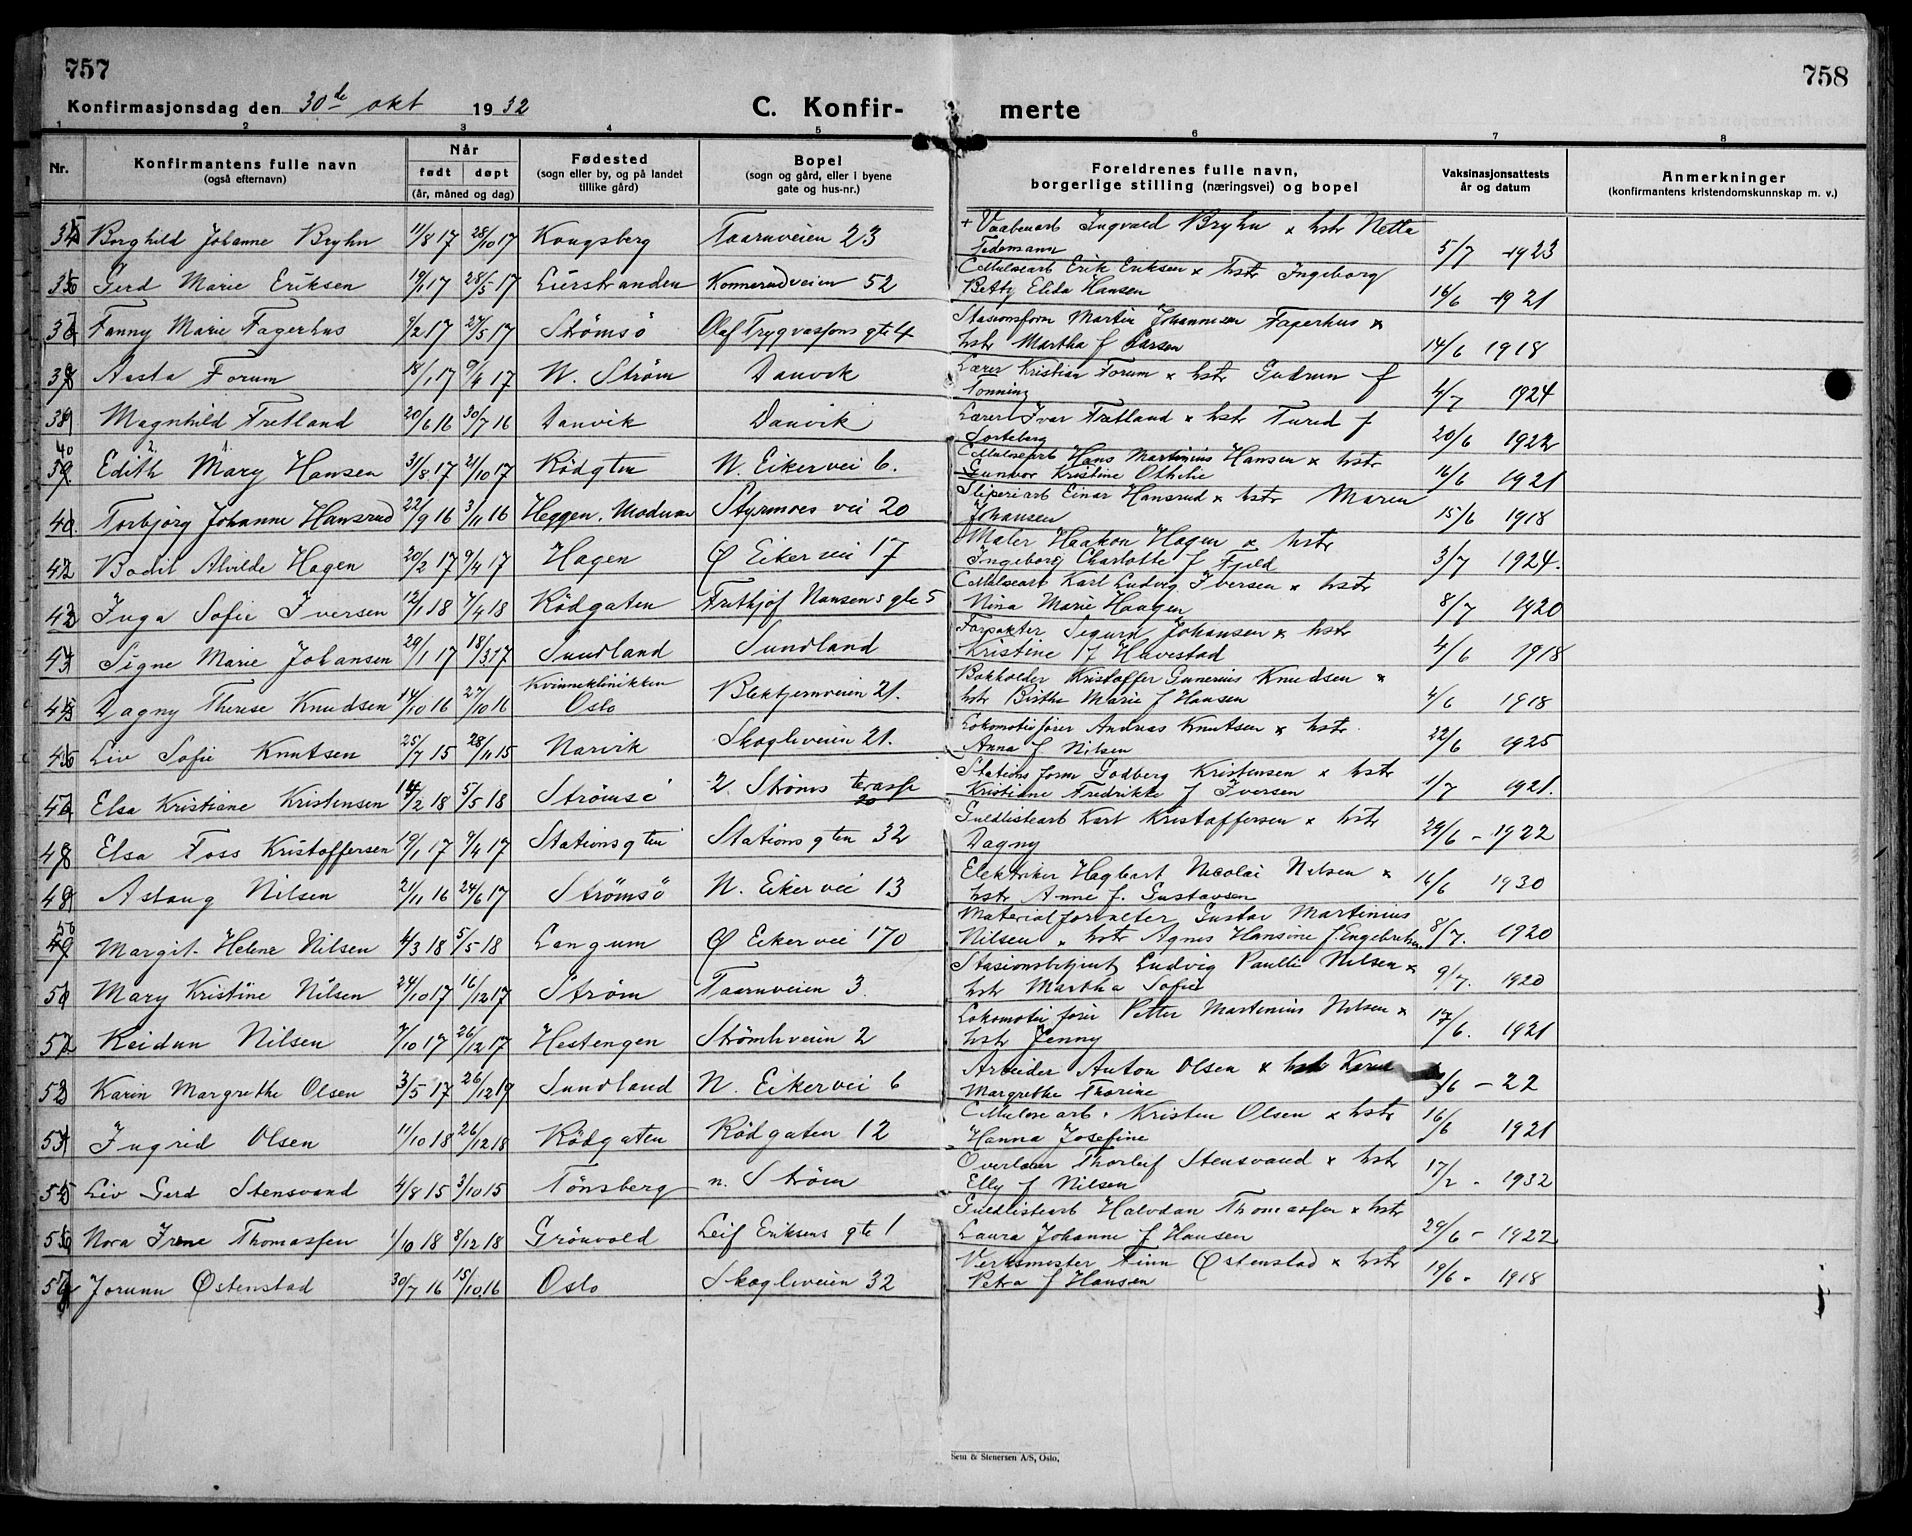 757
758
Konfirmasjonsdag den 30de okt 1932
C. Konfir- merte
1 2 3 4 5 6 7 8
Nr. Konfirmantens fulle navn (også efternavn) Når født døpt (år, måned og dag) Fødested (sogn eller by, og på landet tillike gård) Bopel (sogn og gård, eller i byene gate og hus-nr.) Foreldrenes fulle navn, borgerlige stilling (næringsvei) og bopel Vaksinasjonsattests år og datum Anmerkninger (konfirmantens kristendomskunnskap m. v.)
35 Borghild Johanne Bryhn 11/8 17 28/10 17 Kongsberg Taarnveien 23 + Vaabenarb Ingvald Bryhn x hstr Netta
Tidemann 5/7 1923
36 Gerd Marie Eriksen 19/1 17 28/5 17 Lierstranden Konnerudveien 52 Cellulosearb Erik Eriksen x hstr Ingeborg
Betty Elida Hansen 16/6 1921
37 Fanny Marie Fagerhus /2 17 27/5 17 Strømsö Olaf Trygvasfons gte 4 Stasionsform Martin Johannesen Fagerhus x
hstr Martha f Larsen 14/6 1918
38 Aasta Forum 18/1 17 9/4 17 N. Strøm Danvik Lærer Kristian Forum x hstr Gudrun f
Tonning 4/7 1924
39 Magnhild Fretland 20/6 16 30/7 16 Danvik Danvik Lærer Ivar Fretland x hstr Turid f
Sorteberg 20/6 1922
40 Edith Mary Hansen 31/8 17 21/10 17 Rödgten N. Eikervei 6. Cellulosearb Hans Martinius Hansen x hstr
Gunvor Kristine Othelie 16/6 1921
41 Torbjörg Johanne Hansrud 22/9 16 3/11 16 Heggen, Modum Styrmoes vei 20 Sliperiarb Einar Hansrud x hstr Maren
Johansen 15/6 1918
42 Bodil Alvilde Hagen 20/2 17 9/4 17 Hagen Ø Eiker vei 17 Maler Haakon Hagen x hstr
Ingeborg Charlotte f Fjeld 3/7 1924.
43 Inga Sofie Iversen 12/1 18 7/4 18 Rödgaten Frithjof Nansens gte 5 Cellulosearb Karl Ludvig Iversen x hstr
Nina Marie Haagen 8/7 1920
44 Signe Marie Johansen 29/1 17 18/3 17 Sundland Sundland Forpakter Sigurd Johansen x hstr
Kristine f Havestad 4/6 1918
45 Dagny Therese Knudsen 14/10 16 27/10 16 Kvinneklinikken Oslo Blektjernveien 21. Bokholder Kristoffer Gunerius Knudsen x
hstr Birthe Marie f Hansen 4/6 1918
46 Liv Sofie Knutsen 25/7 15 28/11 15 Narvik Skogliveien 21. Lokomotivfører Andreas Knutsen x hstr
Anna f. Nilsen 22/6 1925
47 Elsa Kristiane Kristensen 14/2 18 5/5 18 Strømsö 2. Strøms terasse 20 Stations form Godberg Kristensen x hstr
Kristiane Fredrikke f Iversen 1/7 1921.
48 Elsa Foss Kristoffersen 19/1 17 9/4 17 Stationsgten Stationsgten 32 Guldlistearb Karl Kristoffersen x hstr
Dagny 29/6 - 1922
49 Aslaug Nilsen 21/11 16 24/6 17 Strömsö N. Eiker vei 13 Elektriker Hagbart Nicolai Nilsen x
hstr Anne f. Gustavsen 16/6 1930
50 Margit Helene Nilsen 4/3 18 5/5 18 Langum Ø Eiker vei 170 Materialforvalter Gustav Martinius
Nilsen x hstr Agnes Hansine f. Engebretsen 8/7. 1920
51 Mary Kristine Nilsen 24/10 17 16/12 17 Strøm Taarnveien 3. Stasionsbetjent Ludvig Paulli Nilsen x
hstr Martha Sofie 9/7. 1920
52 Reidun Nilsen 7/10 17 26/12 17 Hestengen Strømhveien 2 Lokomotivfører Petter Martinius Nilsen x
hstr Jenny 17/6. 1921
53 Karin Margrethe Olsen 3/5 17 26/12 17 Sundland N. Eikervei 6 Arbeider Anton Olsen x hstr Karen
Margrethe Thorine /6 - 22
54 Ingrid Olsen 11/10 18 26/12 18 Rödgaten Rödgaten 12 Cellulosearb. Kristen Olsen x hstr
Hanna Josefine 16/6 1921
55 Liv Gerd Stensvand 4/8 15 3/10 15 Tönsberg n. Strøm Overlærer Thorleif Stensvand x hstr
Elly f Nilsen 17/2 - 1932
56 Nora Irene Thomassen 1/10 18 8/12 18 Grönvold Leif Eriksens gte 1 Guldlistearb Halvdan Thomassen x hstr
Laura Johanne f Hansen 29/6 - 1922
57 Jorunn Østenstad 30/7 16 15/10 16 Oslo Skogliveien 32 Verksmester Finn Østenstad x hstr
Petra f Hansen 19/6. 1918
Sem & Stenersen A/S, Oslo.